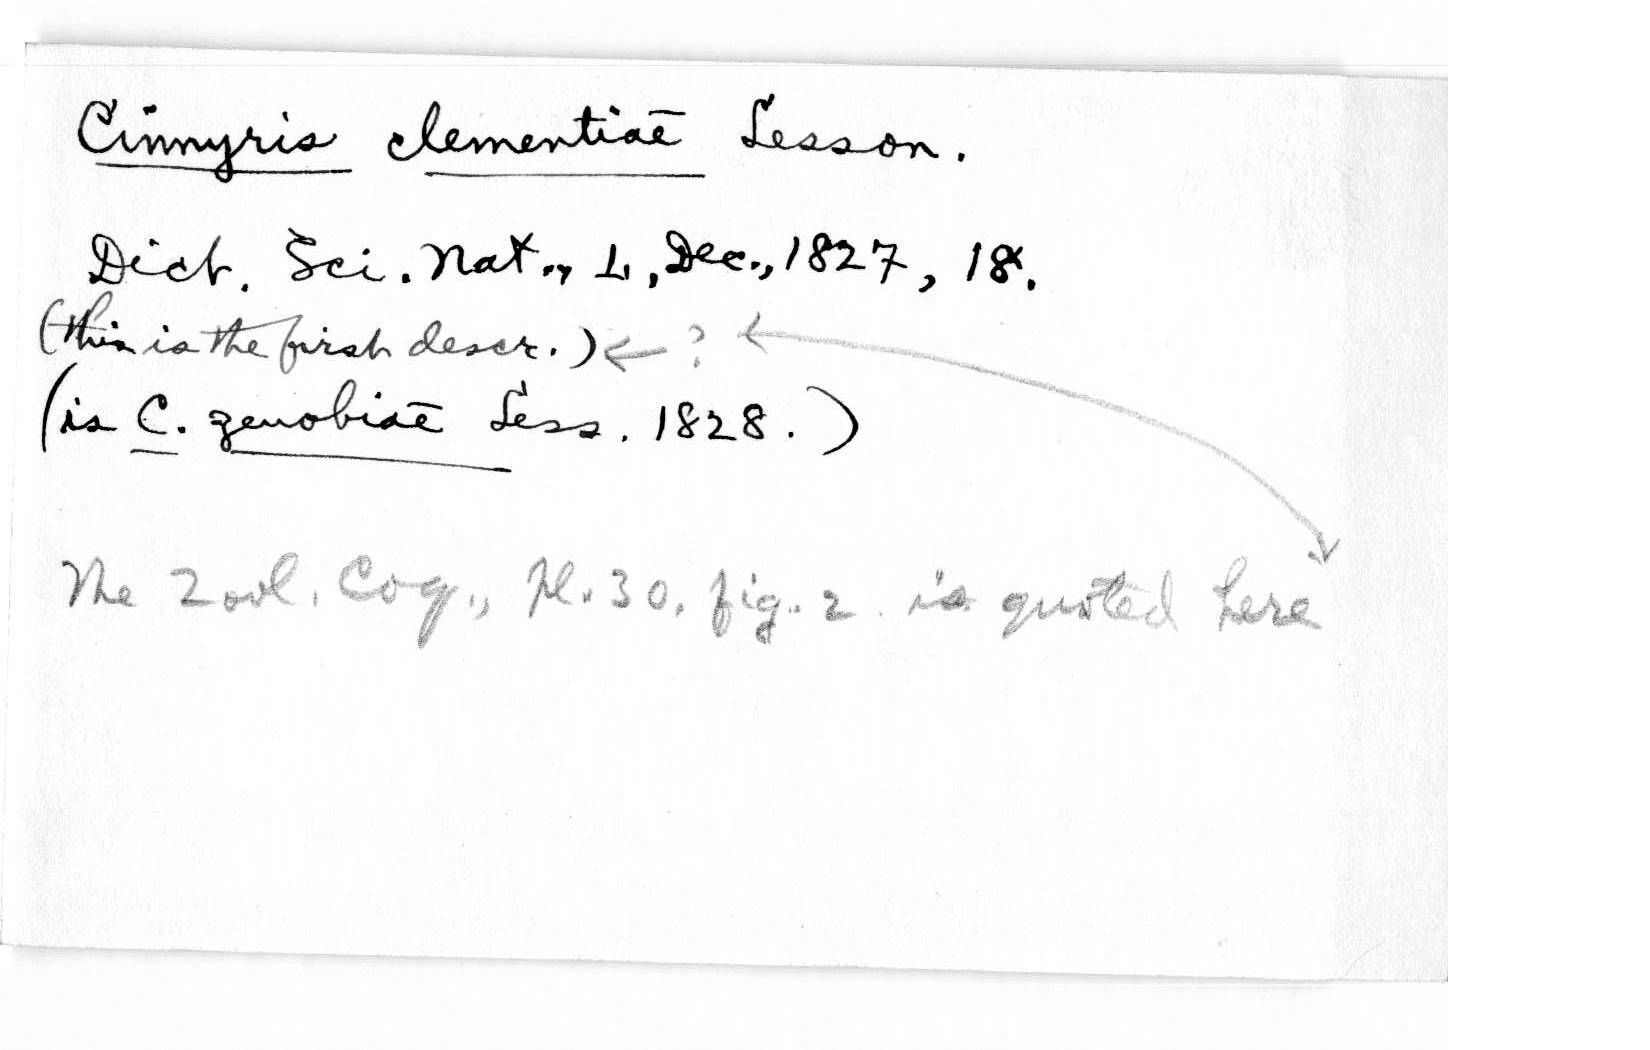 Cinnyris clementiae Lesson.
Dict. Sci. Nat., L, Dec., 1827, 18.
(this is the first descr.) ← ?
(is C. zenobiae Less. 1828.)
The Zool. Coq., pl. 30, fig. 2. is quoted here